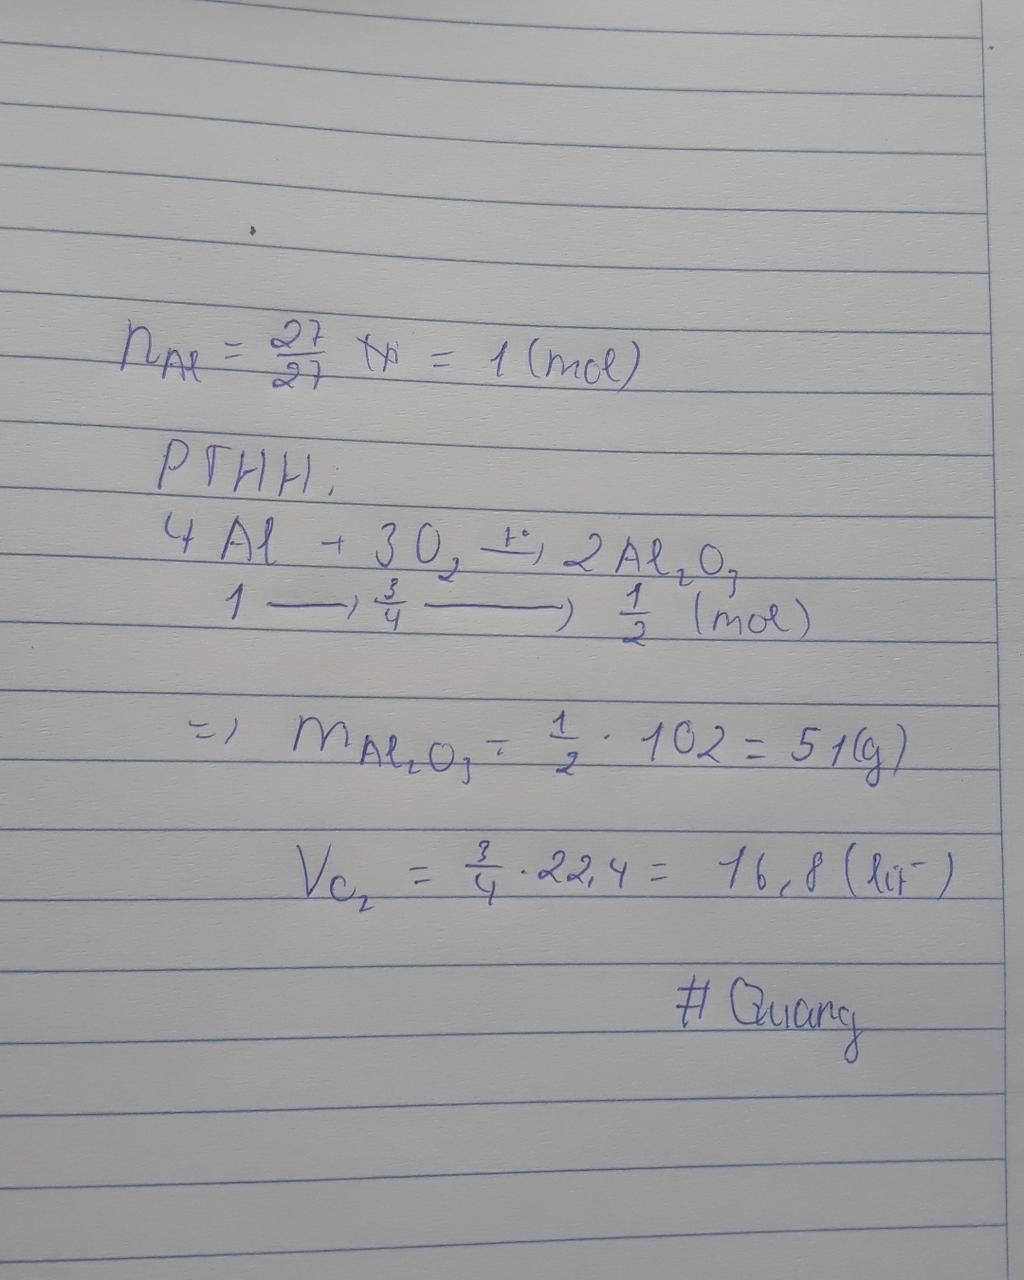 n_Al = 27/27 = 1 (mol)
PTHH:
4Al + 3O₂ t°→ 2Al₂O₃
1 → 3/4 → 1/2 (mol)
=> m_Al₂O₃ = 1/2 . 102 = 51(g)
V_O₂ = 3/4 . 22,4 = 16,8 (lít)
# Quang